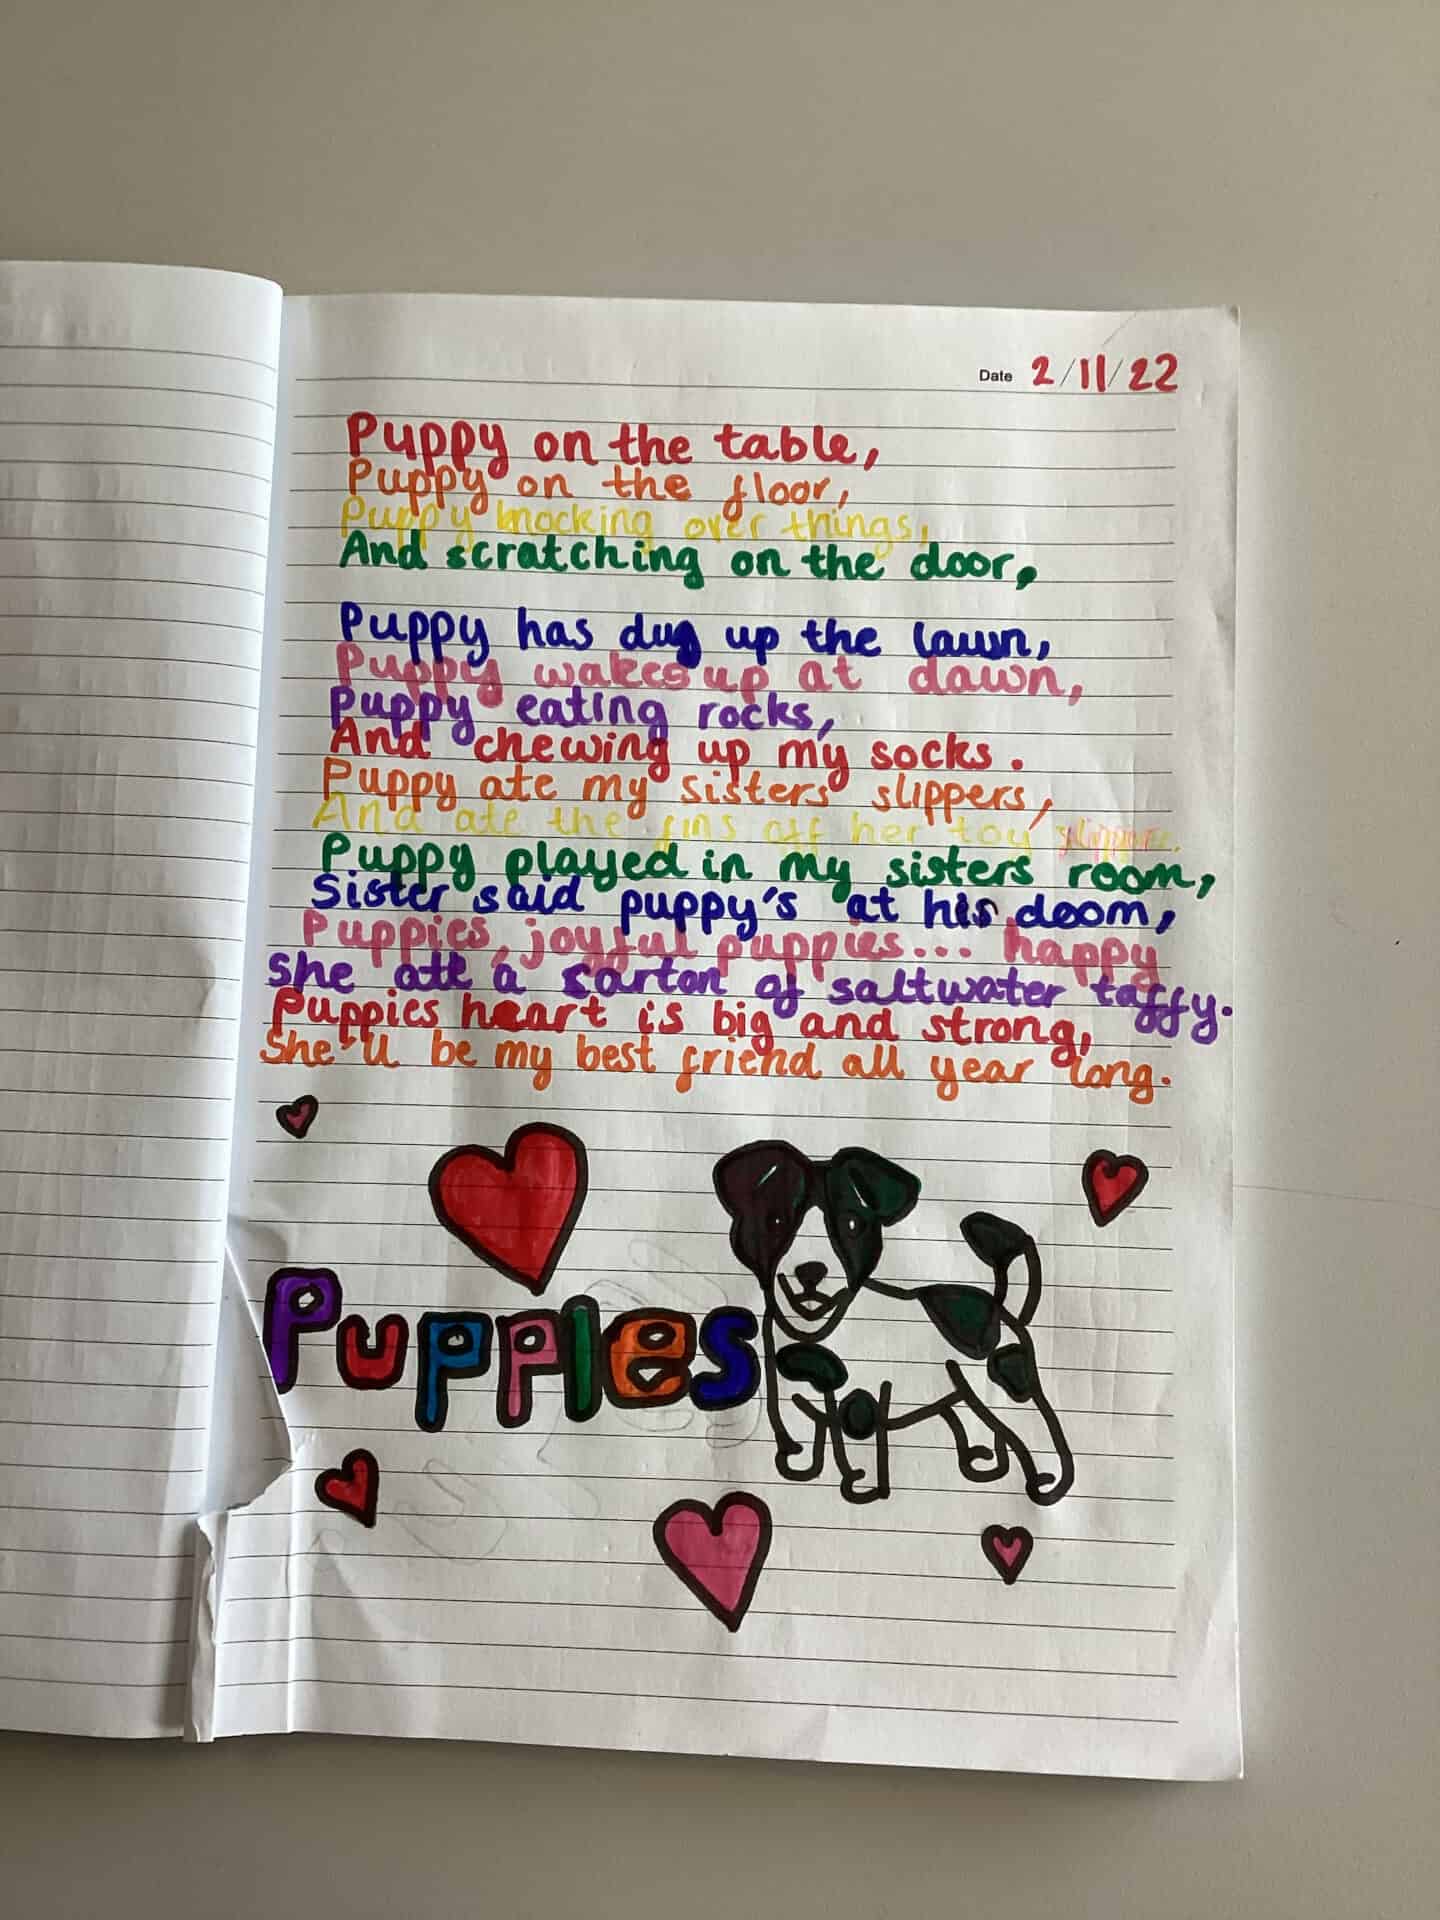 Date 2/11/22
Puppy on the table,
Puppy on the floor,
Puppy knocking over things,
And scratching on the door,
Puppy has dug up the lawn,
Puppy wakes up at dawn,
Puppy eating rocks,
And chewing up my socks.
Puppy ate my sisters slippers,
And ate the fins off her toy
Puppy played in my sisters room,
Sister said puppy's at his doom,
Puppies, joyful puppies... happy
She ate a carton of saltwater taffy.
Puppies heart is big and strong,
She'll be my best friend all year long.
Puppies